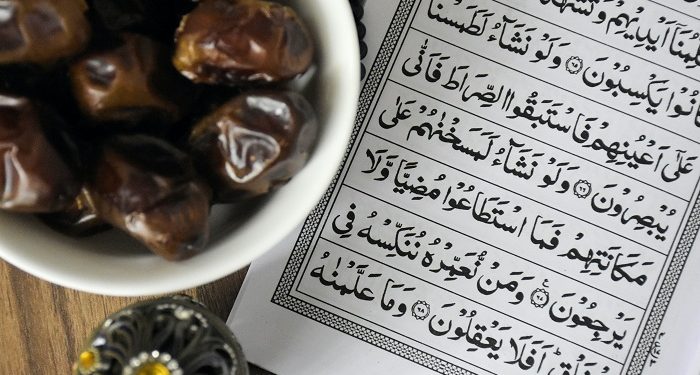 اَيْدِيْهِمْ وَتَشْهَدُ
يَكْسِبُوْنَ ۝٦٥ وَلَوْ نَشَآءُ لَطَمَسْنَا
عَلٰٓى اَعْيُنِهِمْ فَاسْتَبَقُوا الصِّرَاطَ فَاَنّٰى
يُبْصِرُوْنَ ۝٦٦ وَلَوْ نَشَآءُ لَمَسَخْنٰهُمْ عَلٰى
مَكَانَتِهِمْ فَمَا اسْتَطَاعُوْا مُضِيًّا وَّلَا
يَرْجِعُوْنَ ۝٦٧ وَمَنْ نُّعَمِّرْهُ نُنَكِّسْهُ فِى
اَفَلَا يَعْقِلُوْنَ ۝٦٨ وَمَا عَلَّمْنٰهُ